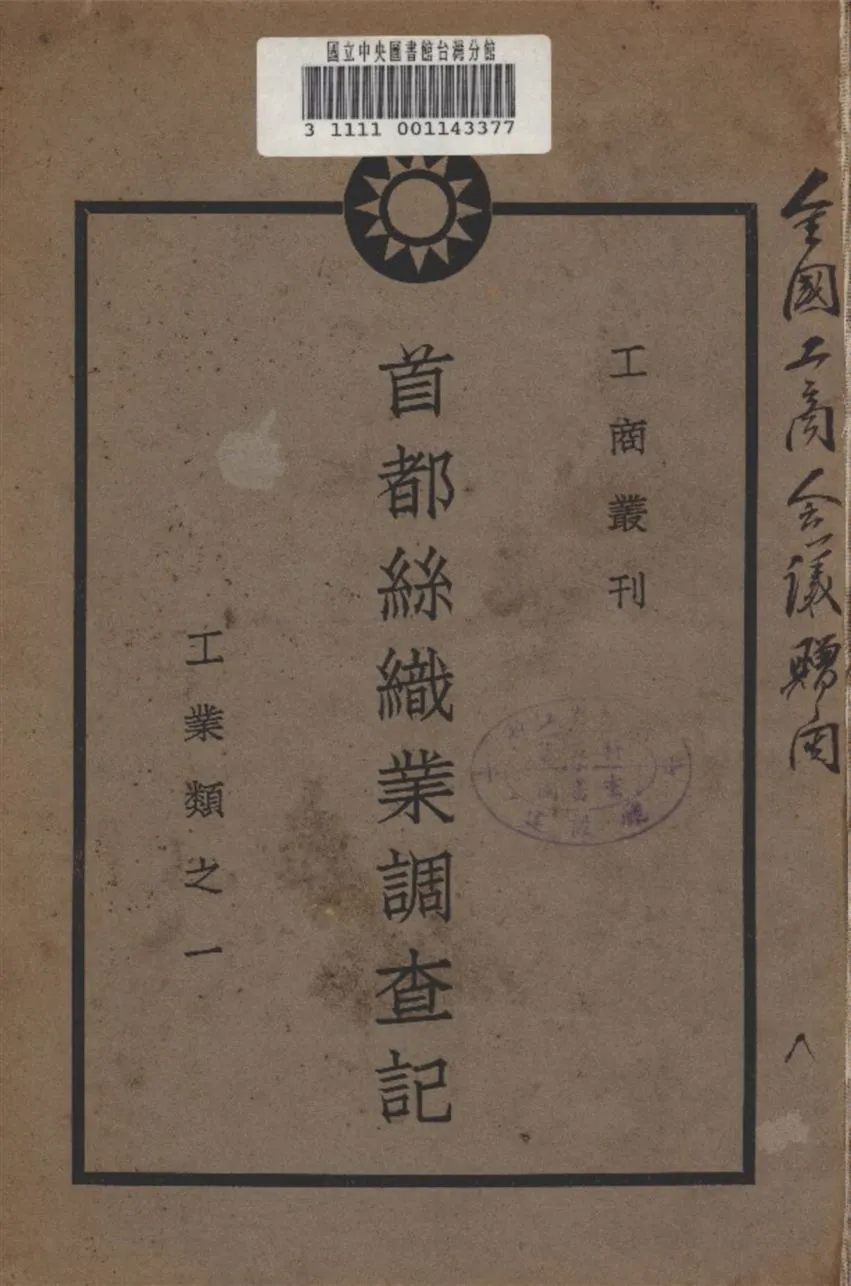 國立中央圖書館台灣分館
3 1111 001143377
全國工商会议贈閱
工商叢刊
首都絲織業調查記
工業類之一